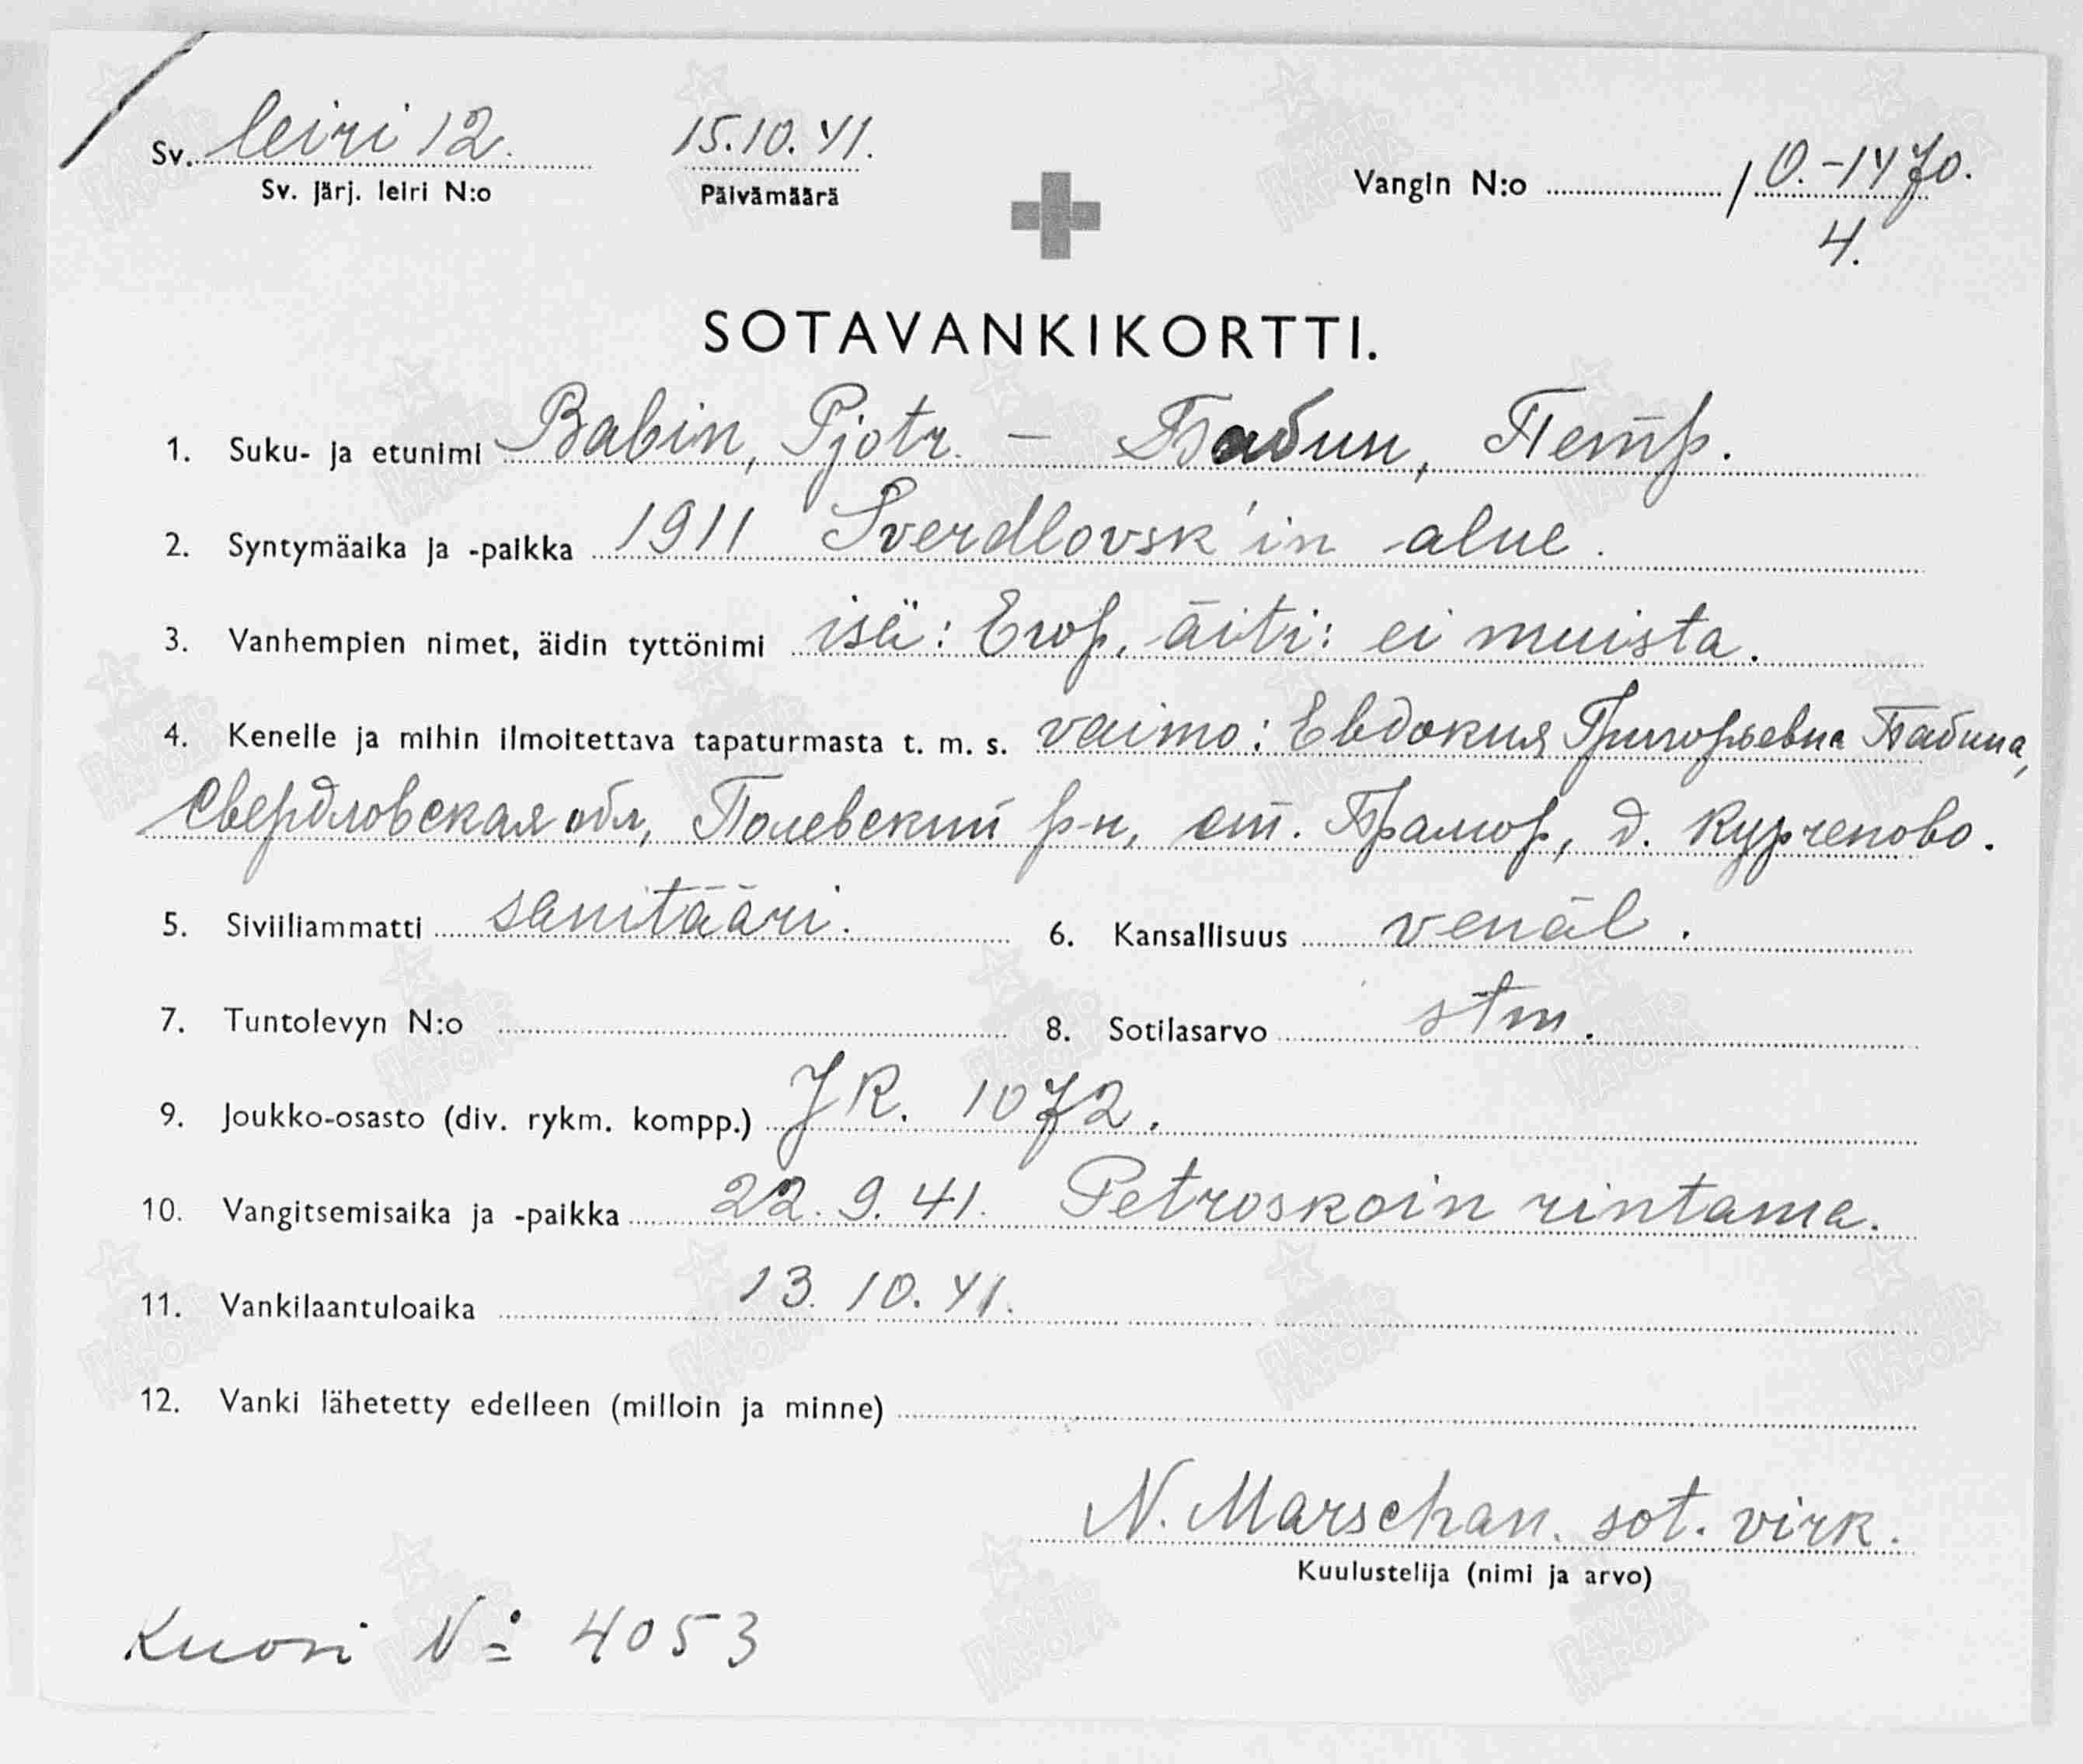 Sv. leiri 12. 15.10.41. Vangin N:o / 0.-1470.
Sv. järj. leiri N:o Päivämäärä 4.
SOTAVANKIKORTTI.
1. Suku- ja etunimi Babin, Pjotr. – Бабин, Петр.
2. Syntymäaika ja -paikka 1911 Sverdlovsk'in alue.
3. Vanhempien nimet, äidin tyttönimi isä: Егор, äiti: ei muista.
4. Kenelle ja mihin ilmoitettava tapaturmasta t. m. s. vaimo: Евдокия Григорьевна Бабина,
Свердловская обл, Полевский р-н, ст. Мрамор, д. Курганово.
5. Siviiliammatti sanitääri. 6. Kansallisuus venäl.
7. Tuntolevyn N:o 8. Sotilasarvo stm.
9. Joukko-osasto (div. rykm. kompp.) JR. 1072.
10. Vangitsemisaika ja -paikka 22.9.41. Petroskoin rintama.
11. Vankilaantuloaika 13.10.41.
12. Vanki lähetetty edelleen (milloin ja minne)
N. Marschan. sot. virk.
Kuulustelija (nimi ja arvo)
Kuori № 4053